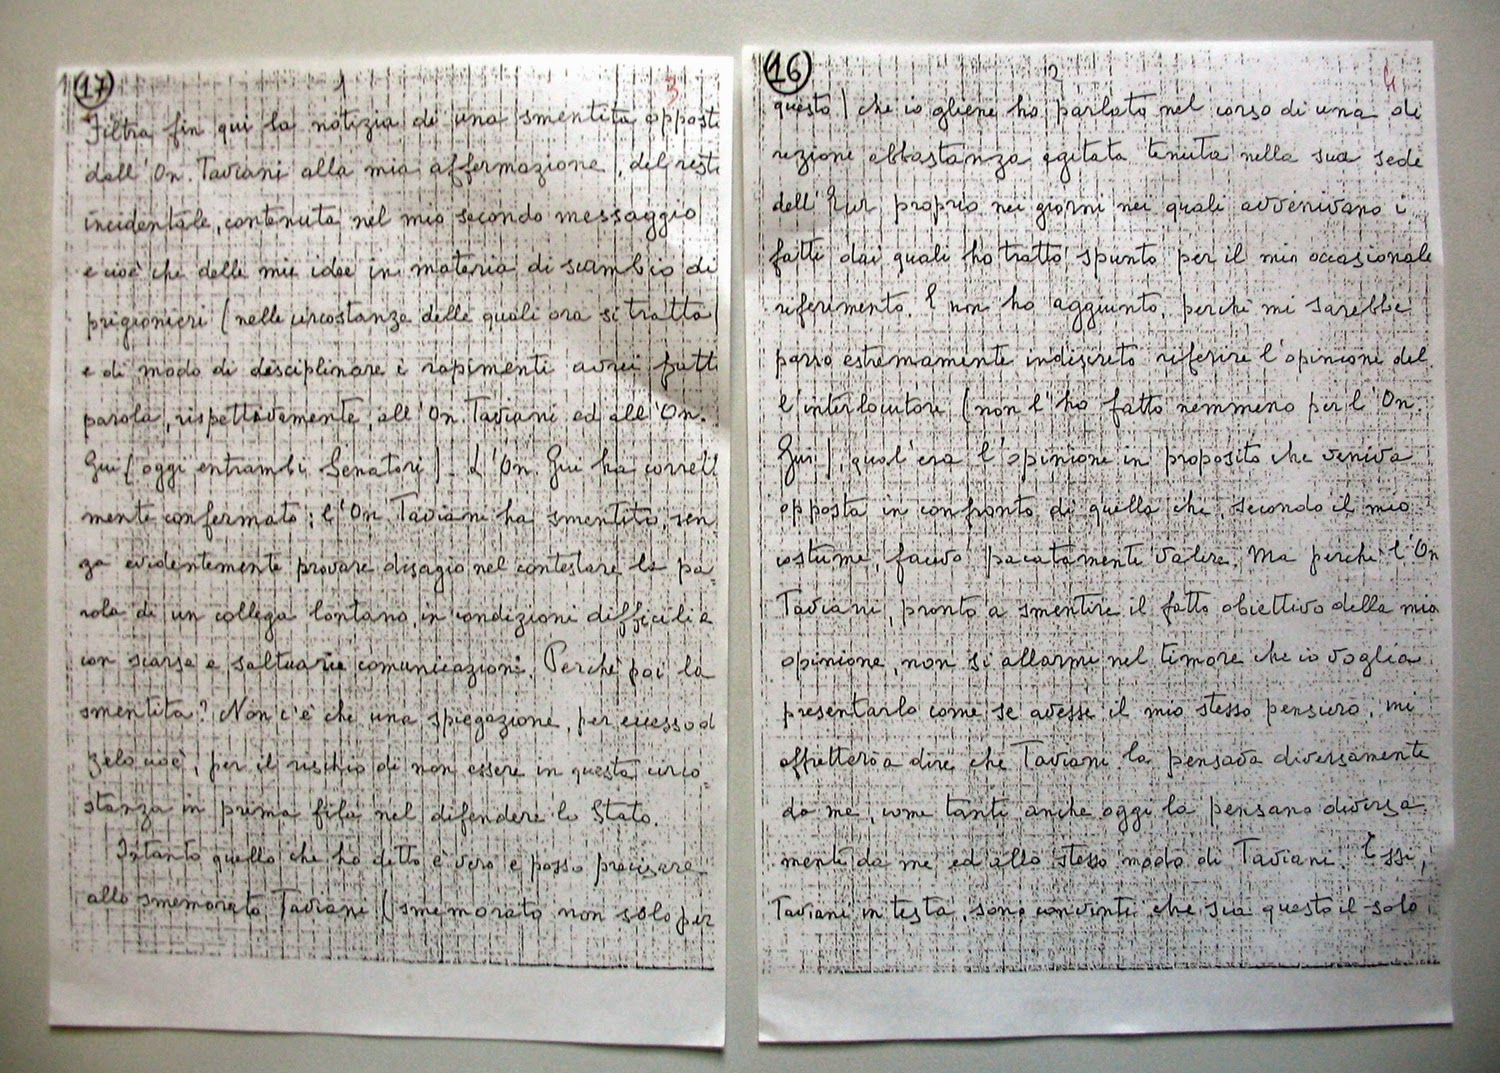 17
1
3
Filtra fin qui la notizia di una smentita opposta
dall'On. Taviani alla mia affermazione, del resto
incidentale, contenuta nel mio secondo messaggio
e cioè che delle mie idee in materia di scambio di
prigionieri (nelle circostanze delle quali ora si tratta)
e di modo di disciplinare i rapimenti avrei fatto
parola, rispettivamente, all'On. Taviani ed all'On.
Gui (oggi entrambi Senatori). L'On. Gui ha corretta
mente confermato; l'On. Taviani ha smentito, sen
za evidentemente provare disagio nel contestare la pa-
rola di un collega lontano, in condizioni difficili e
con scarse e saltuarie comunicazioni. Perchè poi la
smentita? Non c'è che una spiegazione, per eccesso di
zelo cioè, per il rischio di non essere in questa circo-
stanza in prima fila nel difendere lo Stato.
Intanto quello che ho detto è vero e posso precisare
allo smemorato Taviani (smemorato non solo per
16
2
4
questo) che io gliene ho parlato nel corso di una di
rezione abbastanza agitata tenuta nella sua sede
dell'Eur proprio nei giorni nei quali avvenivano i
fatti dai quali ho tratto spunto per il mio occasionale
riferimento. E non ho aggiunto, perchè mi sarebbe
parso estremamente indiscreto riferire l'opinione del
l'interlocutore (non l'ho fatto nemmeno per l'On.
Gui), qual'era l'opinione in proposito che veniva
opposta in confronto di quella che, secondo il mio
costume, facevo pacatamente valere. Ma perchè l'On
Taviani, pronto a smentire il fatto obiettivo della mia
opinione, non si allarmi nel timore che io voglia
presentarlo come se avesse il mio stesso pensiero, mi
affretterò a dire che Taviani la pensava diversamente
da me, come tanti anche oggi la pensano diversa
mente da me ed allo stesso modo di Taviani. Essi,
Taviani in testa, sono convinti che sia questo il solo